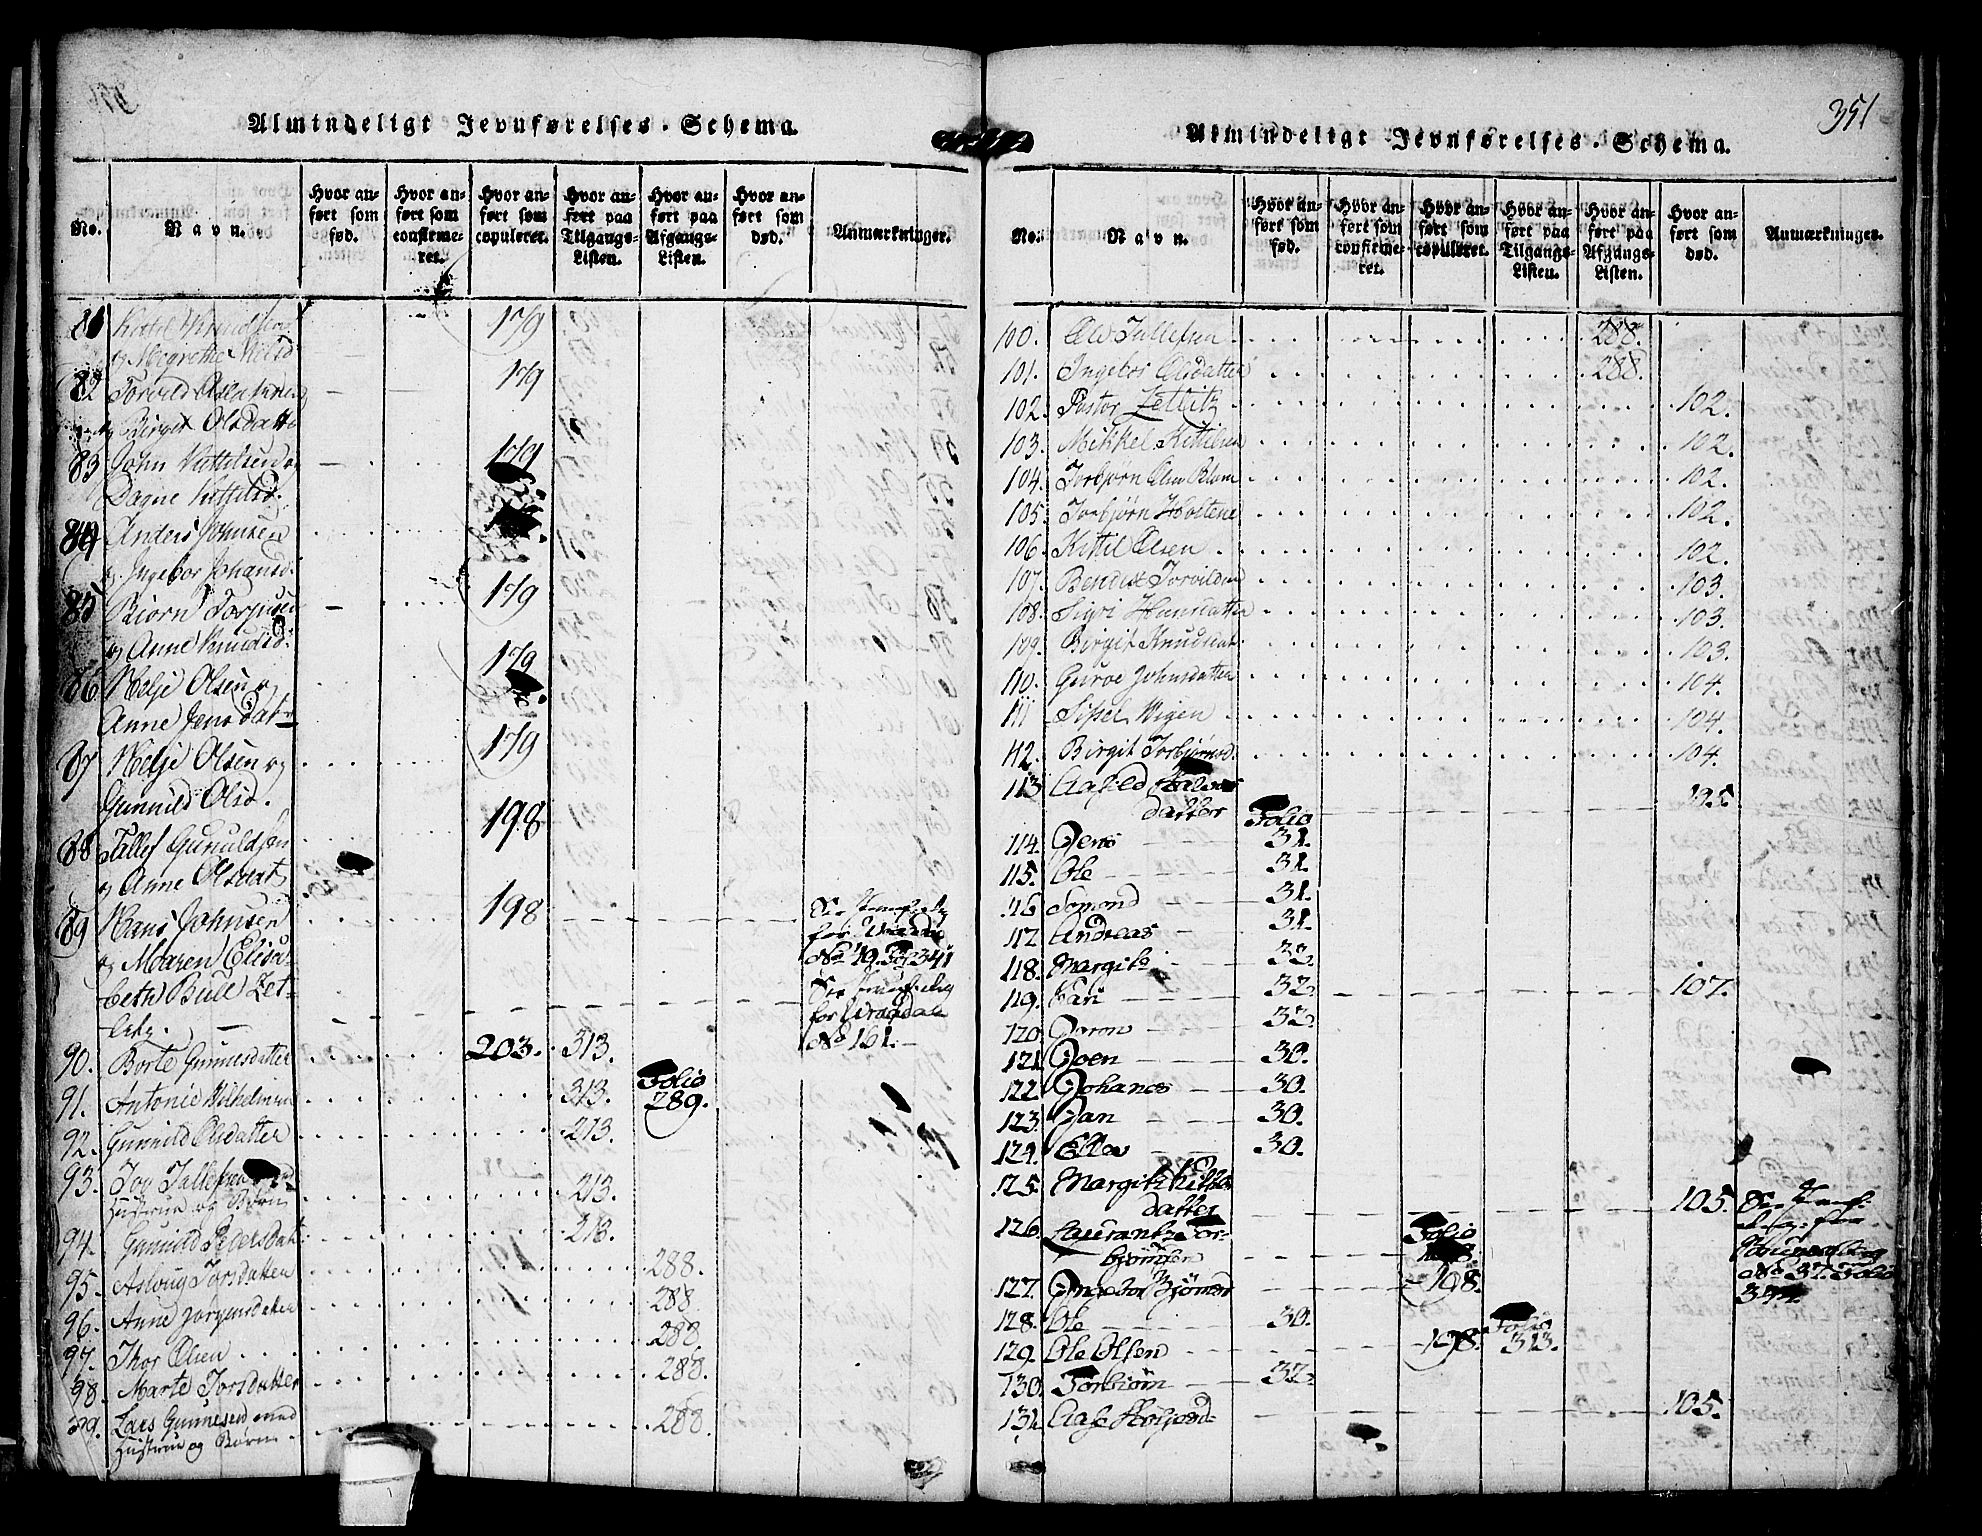 Almindeligt Jevnførelses-Schema.
No.
Navn.
Hvor anført som fød.
Hvor anført som confirmeret.
Hvor anført som copuleret.
Hvor anført paa Tilgangs-Listen.
Hvor anført paa Afgangs-Listen.
Hvor anført som død.
Anmærkninger.
81 Kittil Knudsen 179
og Margrethe
82 Torvild Aslaksen 179
og Birgit Olsdatter
83 John Kittilsen og 179
Dagne Kittilsd.
84 Anders Johnsen
og Ingebor Johansd.
85 Biørn Torjusen 179
og Anne Knudsd:
86 Helje Olsen og 179
Anne Jensdat-
87 Helje Olsen og 179
Gunnild Olsd.
88 Tallef Gunuldsen 198
og Anne Olsdat
89 Hans Johnsen 198
og Maren Elisa-
beth Bull Zet-
litz.
for Vraadal
No 161.
90. Borte Gunnesdatter 203. 313.
91. Antonie Wilhelmine 313. Folio 289.
92. Gunnild Olsdatter 213.
93. Jon Tallefsen 213.
Hustrue og Børn
94. Gunnild Pedersdat: 213.
95. Asloug Torsdatter 288.
96. Anne Jørgensdatter 288.
97. Thor Olsen 288.
98. Marte Torsdatter 288.
99. Lars Gunnesen med 288
Hustrue og Børn
351
Almindeligt Jevnførelses-Schema.
No.
Navn.
Hvor anført som fød.
Hvor anført som confirmeret.
Hvor anført som copuleret.
Hvor anført paa Tilgangs-Listen.
Hvor anført paa Afgangs-Listen.
Hvor anført som død.
Anmærkninger.
100. Ole Tallefsen 288.
101. Ingebor Olsdatter 288.
102. Pastor Zetlitz 102.
103. Mikkel Kittilsen 102.
104. Torbjørn Olsen 102.
105. Torbjørn Holtene 102.
106. Kittil Olsen 102.
107. Bendix Torvildsen 103.
108. Sigri Hansdatter 103.
109. Birgit Knudsdat. 103.
110. Guroe Johnsdatter 104.
111 Sissel Wigen 104.
112. Birgit Torbjørnsd. 104.
113 Aasild
datter Folio
114. Jens 31.
115. Ole 31.
116 Somond 31.
117 Andreas 31.
118. Margit 32.
119. Kari 32. 107.
120. Joron 32.
121. Joen 30.
122. Johanes 30.
123. Jan 30.
124. Ellev 30.
125. Margit Kittils
datter 105.
126. Laurantz Tor-
bjørnsen Folio
127. Ingebor Bjørnsd 198.
128. Ole 30. Folio
129. Ole Olsen 198. 313.
130. Torbiørn 32.
131. Aase 105.